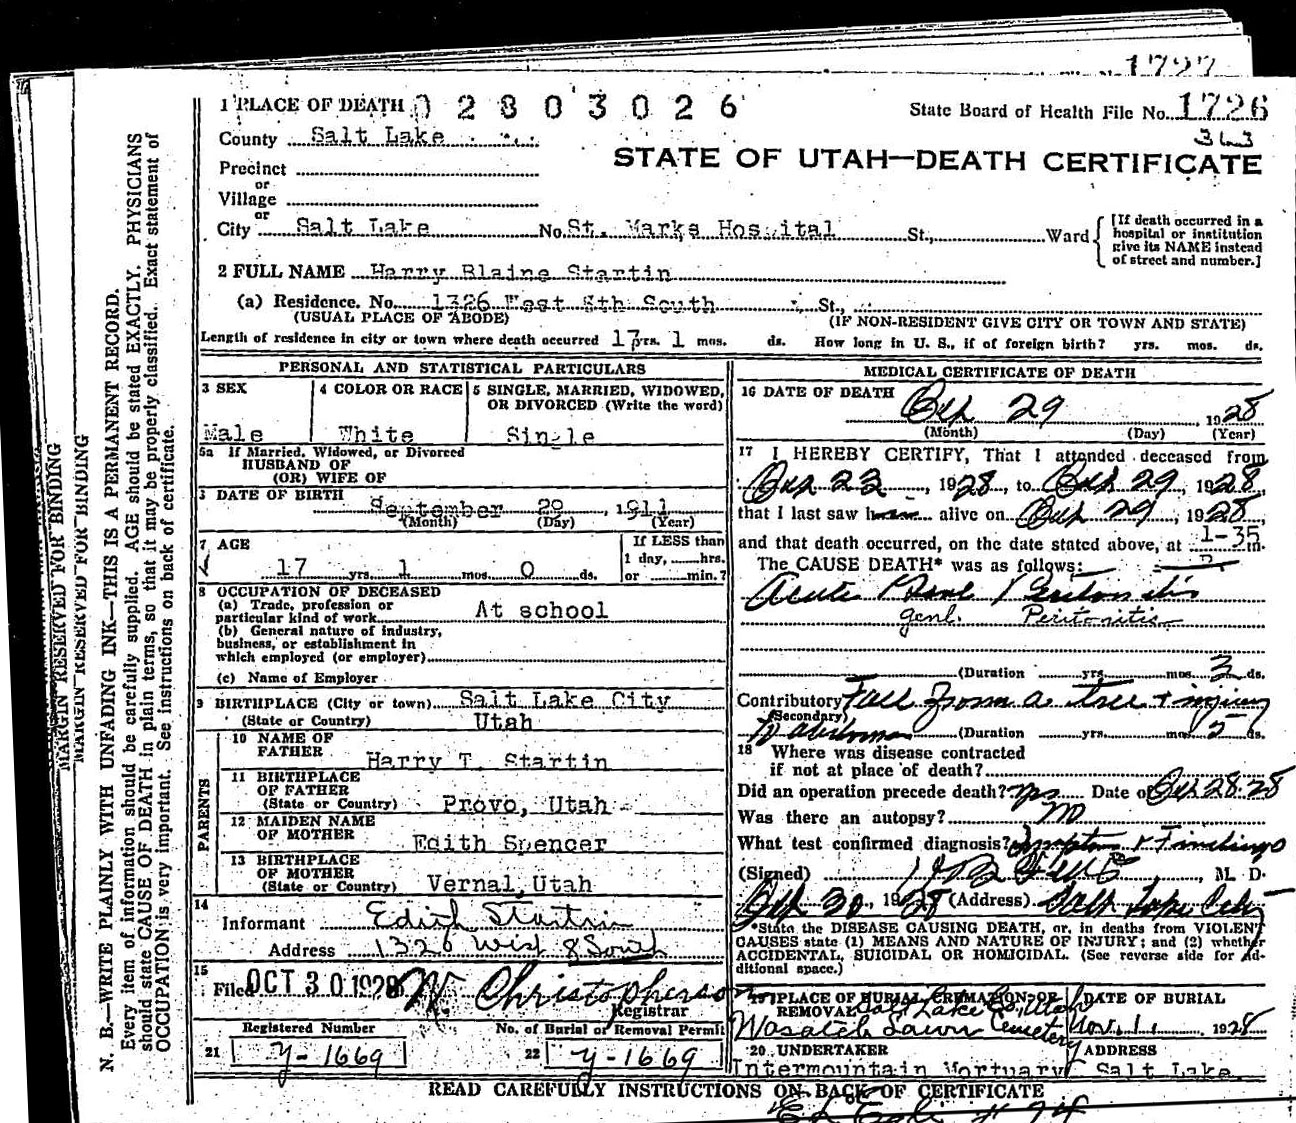 1727
1 PLACE OF DEATH 0 2 8 0 3 0 2 6
State Board of Health File No. 1726
363
County Salt Lake
STATE OF UTAH—DEATH CERTIFICATE
Precinct
or
Village
or
City Salt Lake No. St. Marks Hospital St., Ward
[If death occurred in a
hospital or institution
give its NAME instead
of street and number.]
2 FULL NAME Harry Blaine Startin
(a) Residence. No. 1326 West 8th South St.,
(USUAL PLACE OF ABODE) (IF NON-RESIDENT GIVE CITY OR TOWN AND STATE)
Length of residence in city or town where death occurred 17 yrs. 1 mos. ds. How long in U. S., if of foreign birth? yrs. mos. ds.
PERSONAL AND STATISTICAL PARTICULARS
3 SEX
Male
4 COLOR OR RACE
White
5 SINGLE, MARRIED, WIDOWED,
OR DIVORCED (Write the word)
Single
5a If Married, Widowed, or Divorced
HUSBAND OF
(OR) WIFE OF
DATE OF BIRTH
September 29, 1911
(Month) (Day) (Year)
7 AGE
17 yrs. 1 mos. 0 ds.
If LESS than
1 day, hrs.
or min.?
8 OCCUPATION OF DECEASED
(a) Trade, profession or
particular kind of work At school
(b) General nature of industry,
business, or establishment in
which employed (or employer)
(c) Name of Employer
9 BIRTHPLACE (City or town) Salt Lake City
(State or Country) Utah
PARENTS
10 NAME OF
FATHER Harry T. Startin
11 BIRTHPLACE
OF FATHER
(State or Country) Provo, Utah
12 MAIDEN NAME
OF MOTHER Edith Spencer
13 BIRTHPLACE
OF MOTHER
(State or Country) Vernal, Utah
14
Informant Edith Startin
Address 1326 West 8 South
15
Filed OCT 30 1928 W Christopherson
Registrar
Registered Number
21 y-1669
No. of Burial or Removal Permit
22 y-1669
MEDICAL CERTIFICATE OF DEATH
16 DATE OF DEATH
Oct 29, 1928
(Month) (Day) (Year)
17 I HEREBY CERTIFY, That I attended deceased from
Oct 23, 1928, to Oct 29, 1928,
that I last saw him alive on Oct 29, 1928,
and that death occurred, on the date stated above, at 1-35 m.
The CAUSE DEATH* was as follows: P
Acute Genl Peritonitis
genl. Peritonitis
(Duration yrs. mos. 3 ds.
Contributory Fall from a tree + injury
(Secondary)
to abdomen (Duration yrs. mos. 5 ds.
18 Where was disease contracted
if not at place of death?
Did an operation precede death? yes Date of Oct 28-28
Was there an autopsy? no
What test confirmed diagnosis? Symptoms & Findings
(Signed) , M. D.
Oct 30, 1928 (Address) Salt Lake City
*State the DISEASE CAUSING DEATH, or, in deaths from VIOLENT
CAUSES state (1) MEANS AND NATURE OF INJURY; and (2) whether
ACCIDENTAL, SUICIDAL OR HOMICIDAL. (See reverse side for Ad-
ditional space.)
19 PLACE OF BURIAL, CREMATION OR
REMOVAL Salt Lake Co., Utah
Wasatch Lawn Cemetery
DATE OF BURIAL
Nov. 1, 1928
20 UNDERTAKER
Intermountain Mortuary
ADDRESS
Salt Lake
READ CAREFULLY INSTRUCTIONS ON BACK OF CERTIFICATE
MARGIN RESERVED FOR BINDING
MARGIN RESERVED FOR BINDING
N. B.—WRITE PLAINLY WITH UNFADING INK—THIS IS A PERMANENT RECORD.
Every item of information should be carefully supplied. AGE should be stated EXACTLY. PHYSICIANS
should state CAUSE OF DEATH in plain terms, so that it may be properly classified. Exact statement of
OCCUPATION is very important. See instructions on back of certificate.